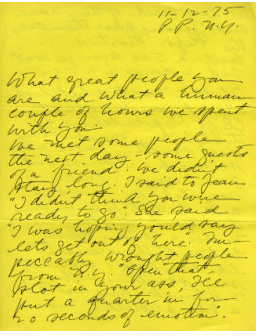 11-12-75
P.P. N.Y.
What great people you
are and what a human
couple of hours we spent
with you
We met some people
the next day - some guests
of a friend we didn't
stay long. I said to Jean
"I didn't think you were
ready to go". She said
"I was hoping you'd say
lets get out of here" Im-
peccably wrought people
from N.Y. "Open that
slot in your ass, I'll
put a quarter in for
20 seconds of emotion.